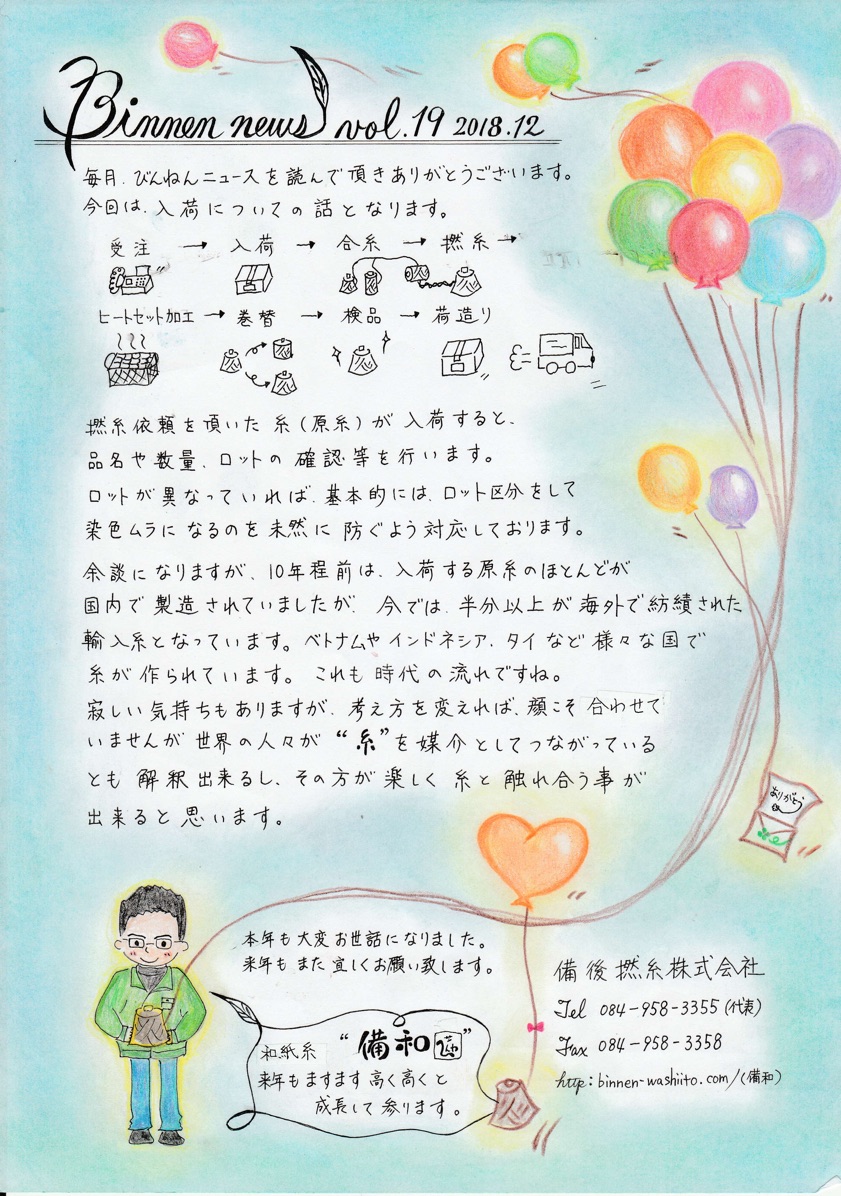 Binnen news vol.19 2018.12
毎月、びんねんニュースを読んで頂きありがとうございます。
今回は、入荷についての話となります。
受注 → 入荷 → 合糸 → 撚糸 →
ヒートセット加工 → 巻替 → 検品 → 荷造り
撚糸依頼を頂いた糸(原糸)が入荷すると、
品名や数量、ロットの確認等を行います。
ロットが異なっていれば、基本的には、ロット区分をして
染色ムラになるのを未然に防ぐよう対応しております。
余談になりますが、10年程前は、入荷する原糸のほとんどが
国内で製造されていましたが、今では、半分以上が海外で紡績された
輸入糸となっています。ベトナムやインドネシア、タイなど様々な国で
糸が作られています。これも時代の流れですね。
寂しい気持ちもありますが、考え方を変えれば、顔こそ合わせて
いませんが世界の人々が“糸”を媒介としてつながっている
とも解釈出来るし、その方が楽しく糸と触れ合う事が
出来ると思います。
ありがとう
本年も大変お世話になりました。
来年もまた宜しくお願い致します。
和紙糸 “備和”
来年もますます高く高くと
成長して参ります。
備後撚糸株式会社
Tel 084-958-3355(代表)
Fax 084-958-3358
http:binnen-washiito.com/(備和)